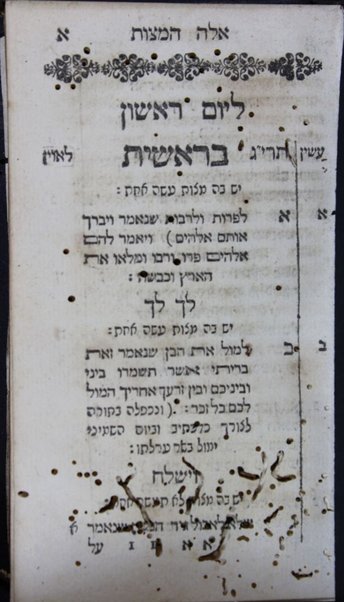 אלה המצות א
ליום ראשון
עשין תרי״ג בראשית לאוין
יש בה מצות עשה אחת :
א א לפרות ולרבות שנאמר ויברך
אותם אלהים ) ויאמר להם
אלהים פרו ורבו ומלאו את
הארץ וכבשה :
לך לך
יש בה מצות עשה אחת :
ב ב למול את הבן שנאמר זאת
בריתי אשר תשמרו ביני
וביניכם ובין זרעך אחריך המול
לכם כל זכר : ( ונכפלה בפרשה
וביום השמיני
ימול בשר ערלתו :
וישלח
יש בה מצות לא תעשה אחת :
שלא לאכול גיד שנאמר א
על